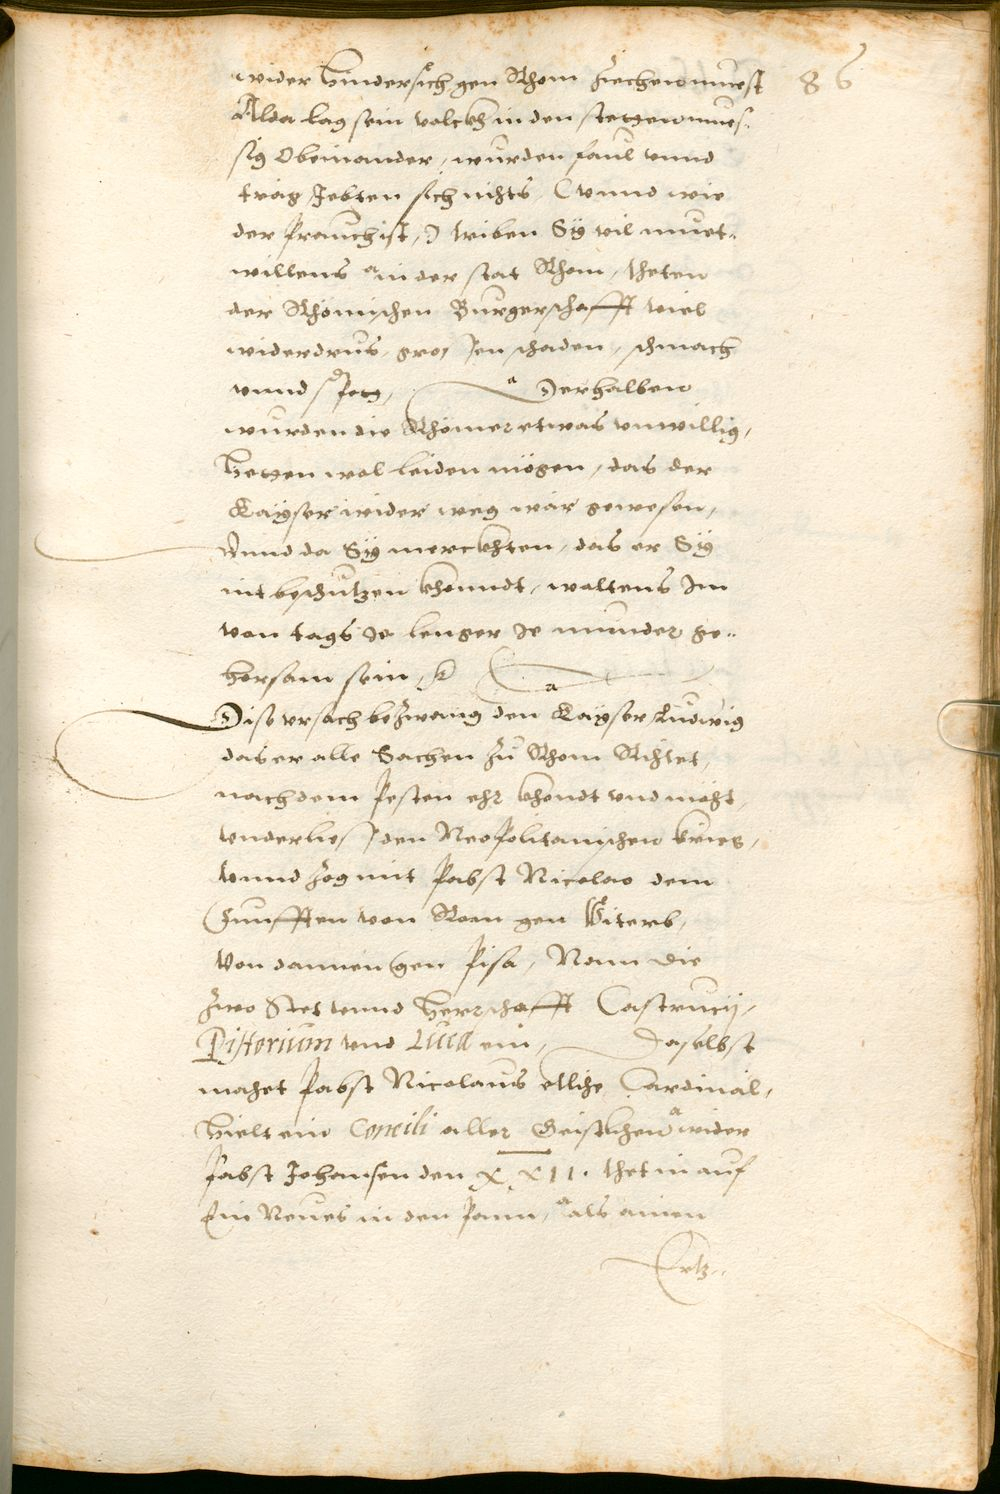 86
wider hindersich gen Rhom ziechen muest
Alda lag sein volckh in den stetgen mues-
sig Obeinander, wurden faul vnnd
träg, Jebten sich nichts, (vnnd wie
der prauch ist,) triben Sy vil muet-
willens in der stat Rhom, theten
der Rhömischen Burgerschafft viel
widerdrus, grossen schaden, schmach
vnnd spot, Derhalben
wurden die Rhömer etwas vnwillig,
hetten wol leiden mögen, das der
Kayser wider weg wär gewesen,
Vnnd da Sy merckhten, das er Sy
nit beschützen khonndt, wolltens Im
von tags Je lenger Je minder ge-
horsam sein,
Dise vrsach bezwang den Kayser Ludwig
das er alle Sachen zu Rhom Richtet,
nach dem pesten ehr khondt vnd mocht,
vnderlies den Neapolitanischen krieg,
vnnd zog mit Pabst Nicolao dem
Funfften von Rom gen Viterb,
Von dannen gen Pisa, Nam die
zwo Stet vnnd herrschafft Castrucij,
Pistorium vnd Luca ein, Daselbst
machet Pabst Nicolaus etliche Cardinäl,
hielt ein Concili aller Geistlichen wider
Pabst Johansen den XXII. thet in auf
Ein Neues in den pann, als ainen
Ertz-